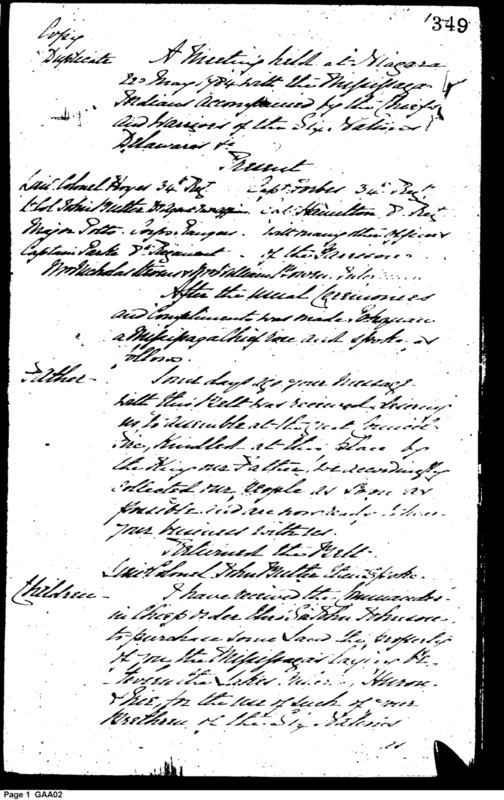 349
Copy
Duplicate
A Meeting held at Niagara
22d May 1784 with the Mississaga
Indians accompanied by the Chiefs
and Warriors of the Six Nations
Delawares &c
Present
Lieut Colonel Hoyes 34th Regt Capt Forbes 34th Regt
Lt Col John Butler Col Hamilton Regt
Major Potts Corps Rangers with many other Officers
Captain Parke Regiment of the Garrison
Mr Nicholas Stevens Mr William Bowen
After the usual Ceremonies
and Compliments was made
a Missisaga Chief rose and spoke as
follows
Father
Some days ago your Message
with this Belt was received desiring
us to assemble at the great Council
Fire, Kindled at this place by
the King our Father, we accordingly
collected our people as soon as
possible and are now ready to hear
your business with us
Returned the Belt
Lieut Colonel John Butler then spoke
Children
I have received the Commander
in Chiefs Order thro Sir John Johnson
to purchase some Land the property
of you the Missisagas laying Be-
tween the Lakes Huron
& Erie, for the use of such of your
Brethren of the Six Nations
as
Page 1 GAA02